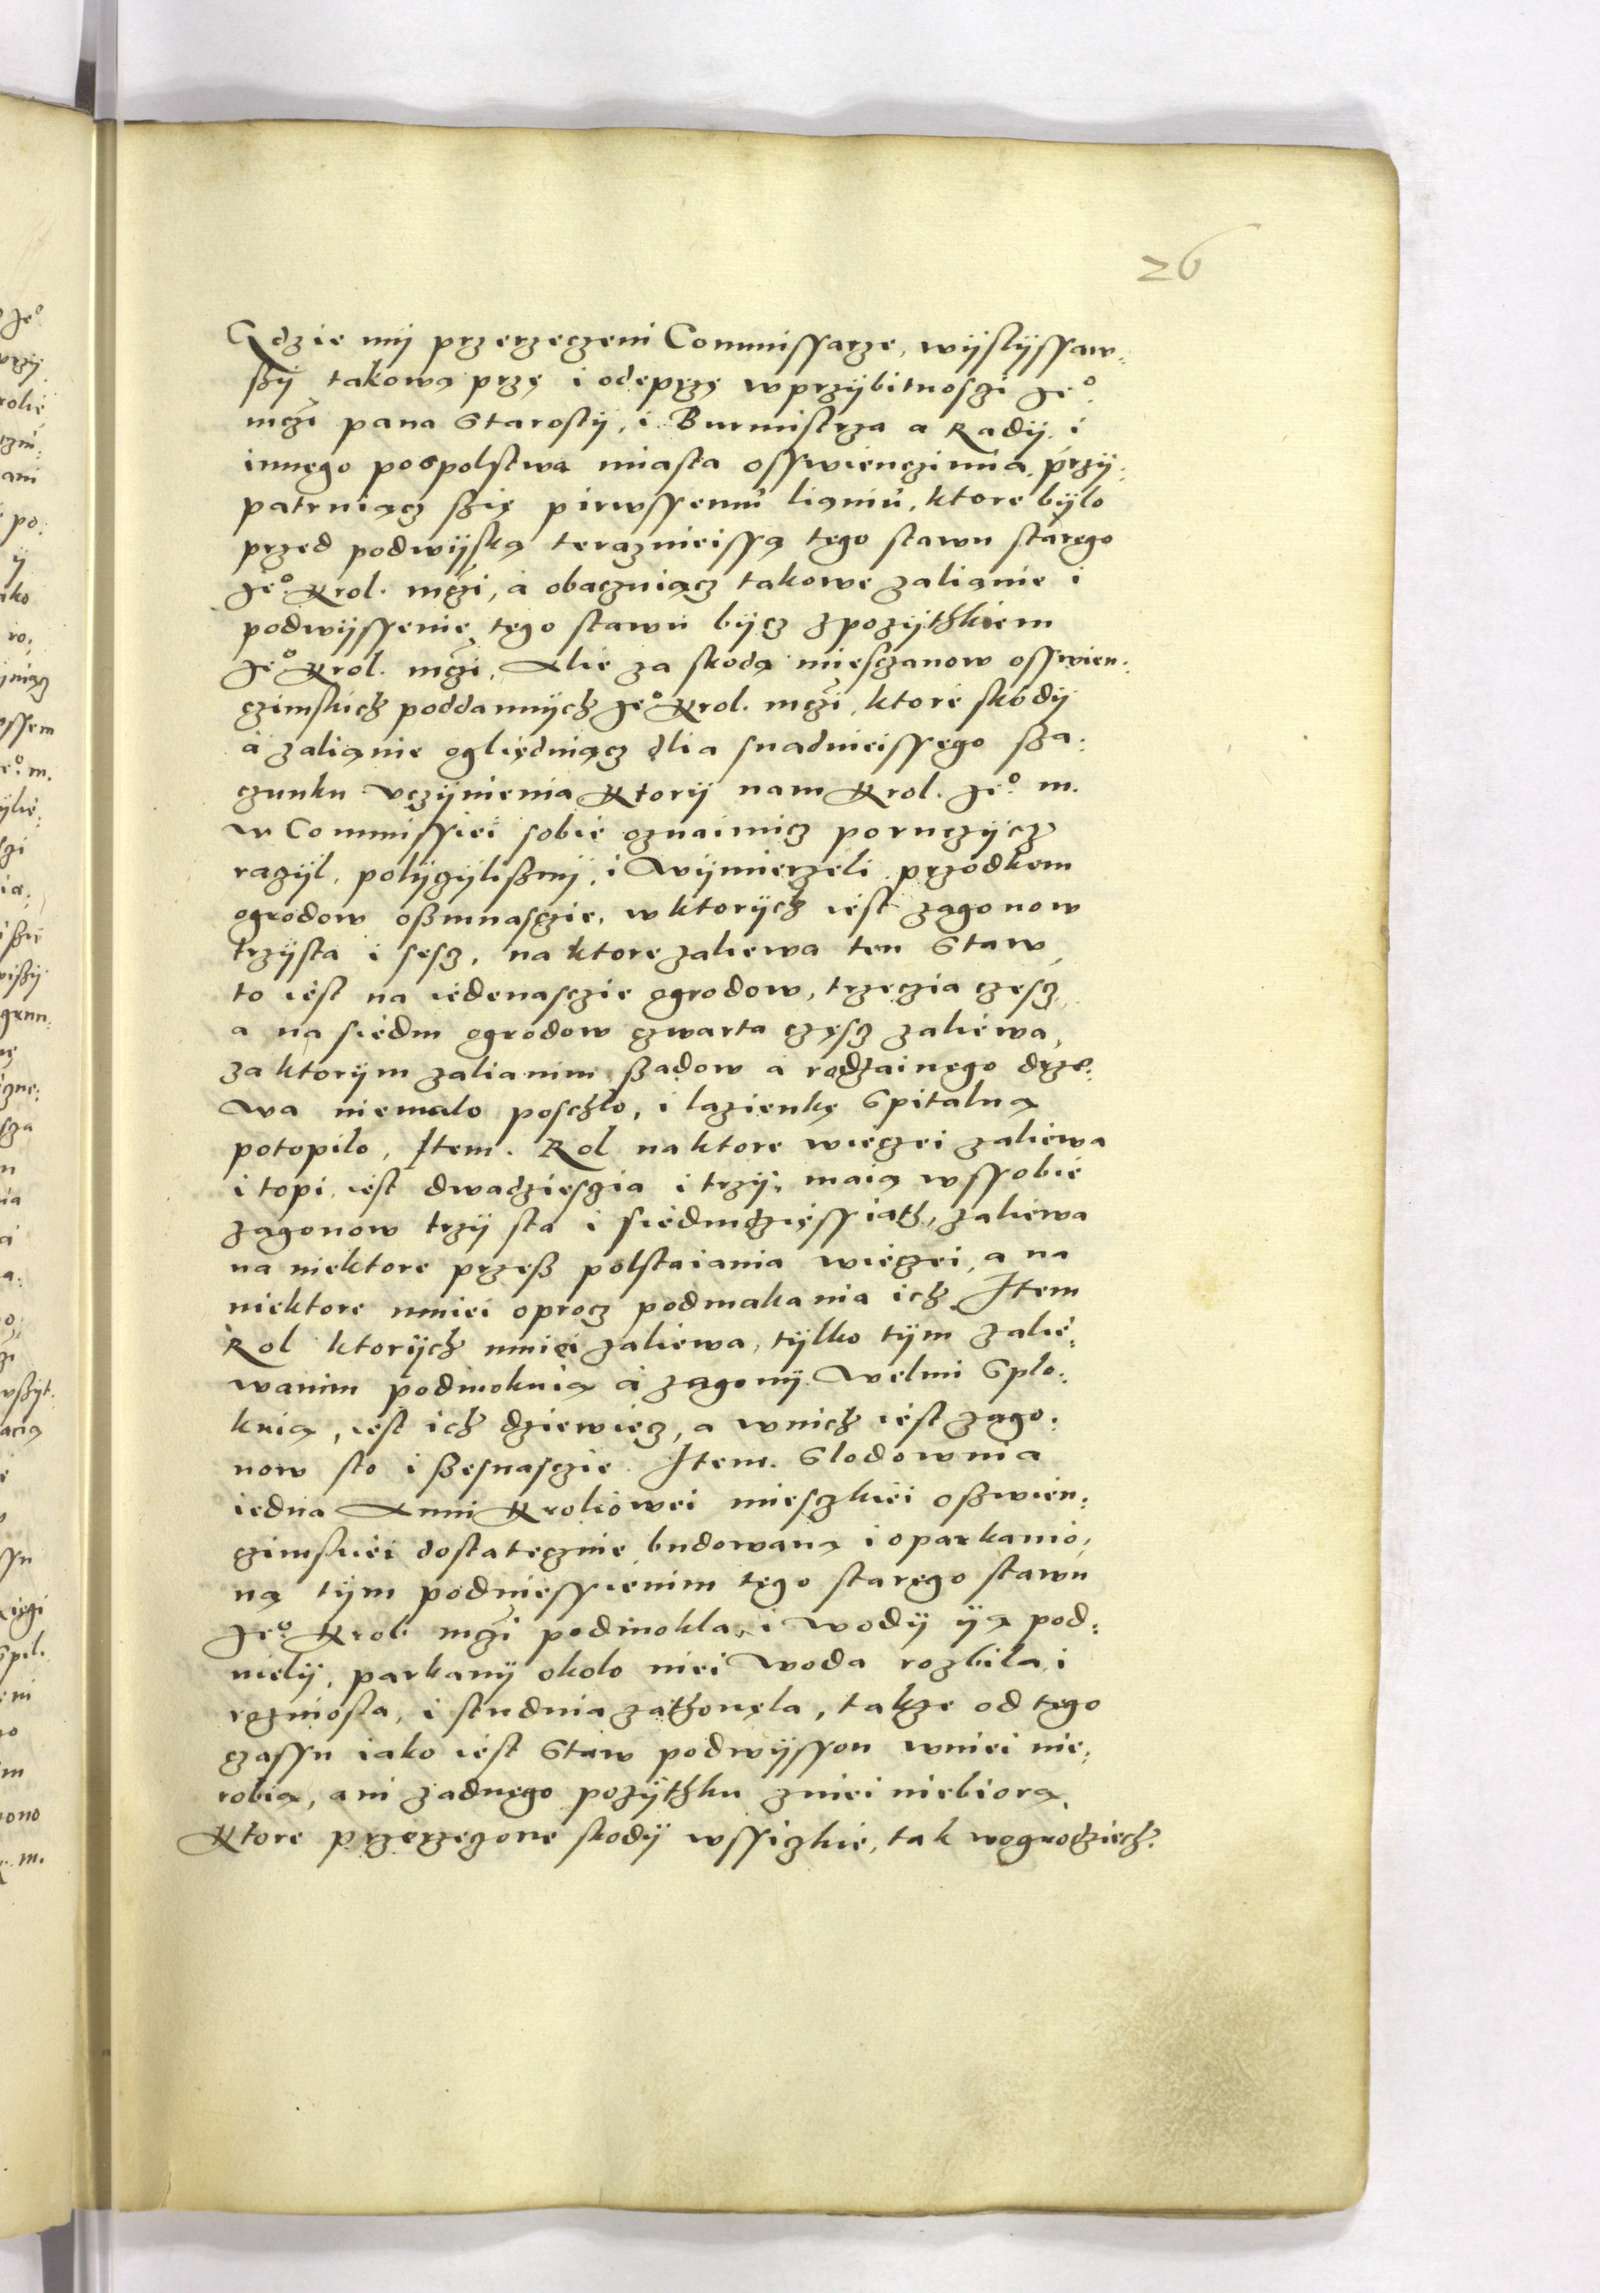 26
Gdzie mÿ przerzeczeni Commissarze, wÿslÿssaw:
ßÿ takową przę i odeprzę w przÿbitnosczi Je°
mczi pana Starostÿ, i Burmistrza a Radÿ i
innego pospolstwa miasta osswienczimia, przÿ:
patruiącz ßię pirwssemu lianiu, ktore bÿlo
przed podwÿską teraznieissą tego stawu starego
Je° Krol. mczi, a obacżuiącz takowe zalianie i
podwÿssenie tego stawu bÿcz z pozÿthkiem
Je° Krol. mczi, Alie za skodą miesczanow osswien:
czimskich poddannÿch Je° Krol. mczi, ktore skodÿ
a zalianie ogliędniącz dlia snadnieissego sza:
czunku vczÿnienia Ktorÿ nam Krol. Je° m.
w Commissiei sobie oznaimicz porucżÿcz
raczÿl, policzÿlißmÿ, i Wÿmierzeli przodkem
ogrodow oßmnasczie, w ktorÿch iest zagonow
trzÿsta i sescz, na ktore zaliewa ten Staw
to iest na iedenasczie ogrodow, trzeczia czescz
a na siedm ogrodow czwarta cżęscz zaliewa,
za ktorÿm zalianim ßadow a rodzainego drze:
wa niemalo poschlo, i lazienkę Spitalną
potopilo, Item. Rol na ktore wieczei zaliewa
i topi iest dwadziesczia i trzÿ, maią wssobie
zagonow trzÿ sta i siedmdziessiath, zaliewa
na niektore przeß polstaiania wieczei, a na
niektore mniei oprocz podmakania ich. Item
Rol ktorÿch mniei zaliewa, tÿlko tÿm zalie:
wanim podmokną a zagonÿ Welmi Splo:
kuią, iest ich dziewiecz, a wnich iest zago:
now sto i ßesnasczie. Item. Slodownia
iedna Anni Kroliowei miesczkiei oßwien:
czimskiei dostatecznie budowaną i oparkanio:
ną tÿm podniessienim tego starego stawu
Je° Krol. mczi podmokla, i Wodÿ ÿą pod:
mielÿ, parkanÿ okolo niei Woda rozbila, i
rozniosla, i studnia zathonęla, także od tego
czassu iako iest Staw podwÿsson wniei nie:
robią, ani zadnego pozÿthku zniei niebiorą,
Ktore przerzeczone skodÿ wssiczkie, tak wogrodziech.